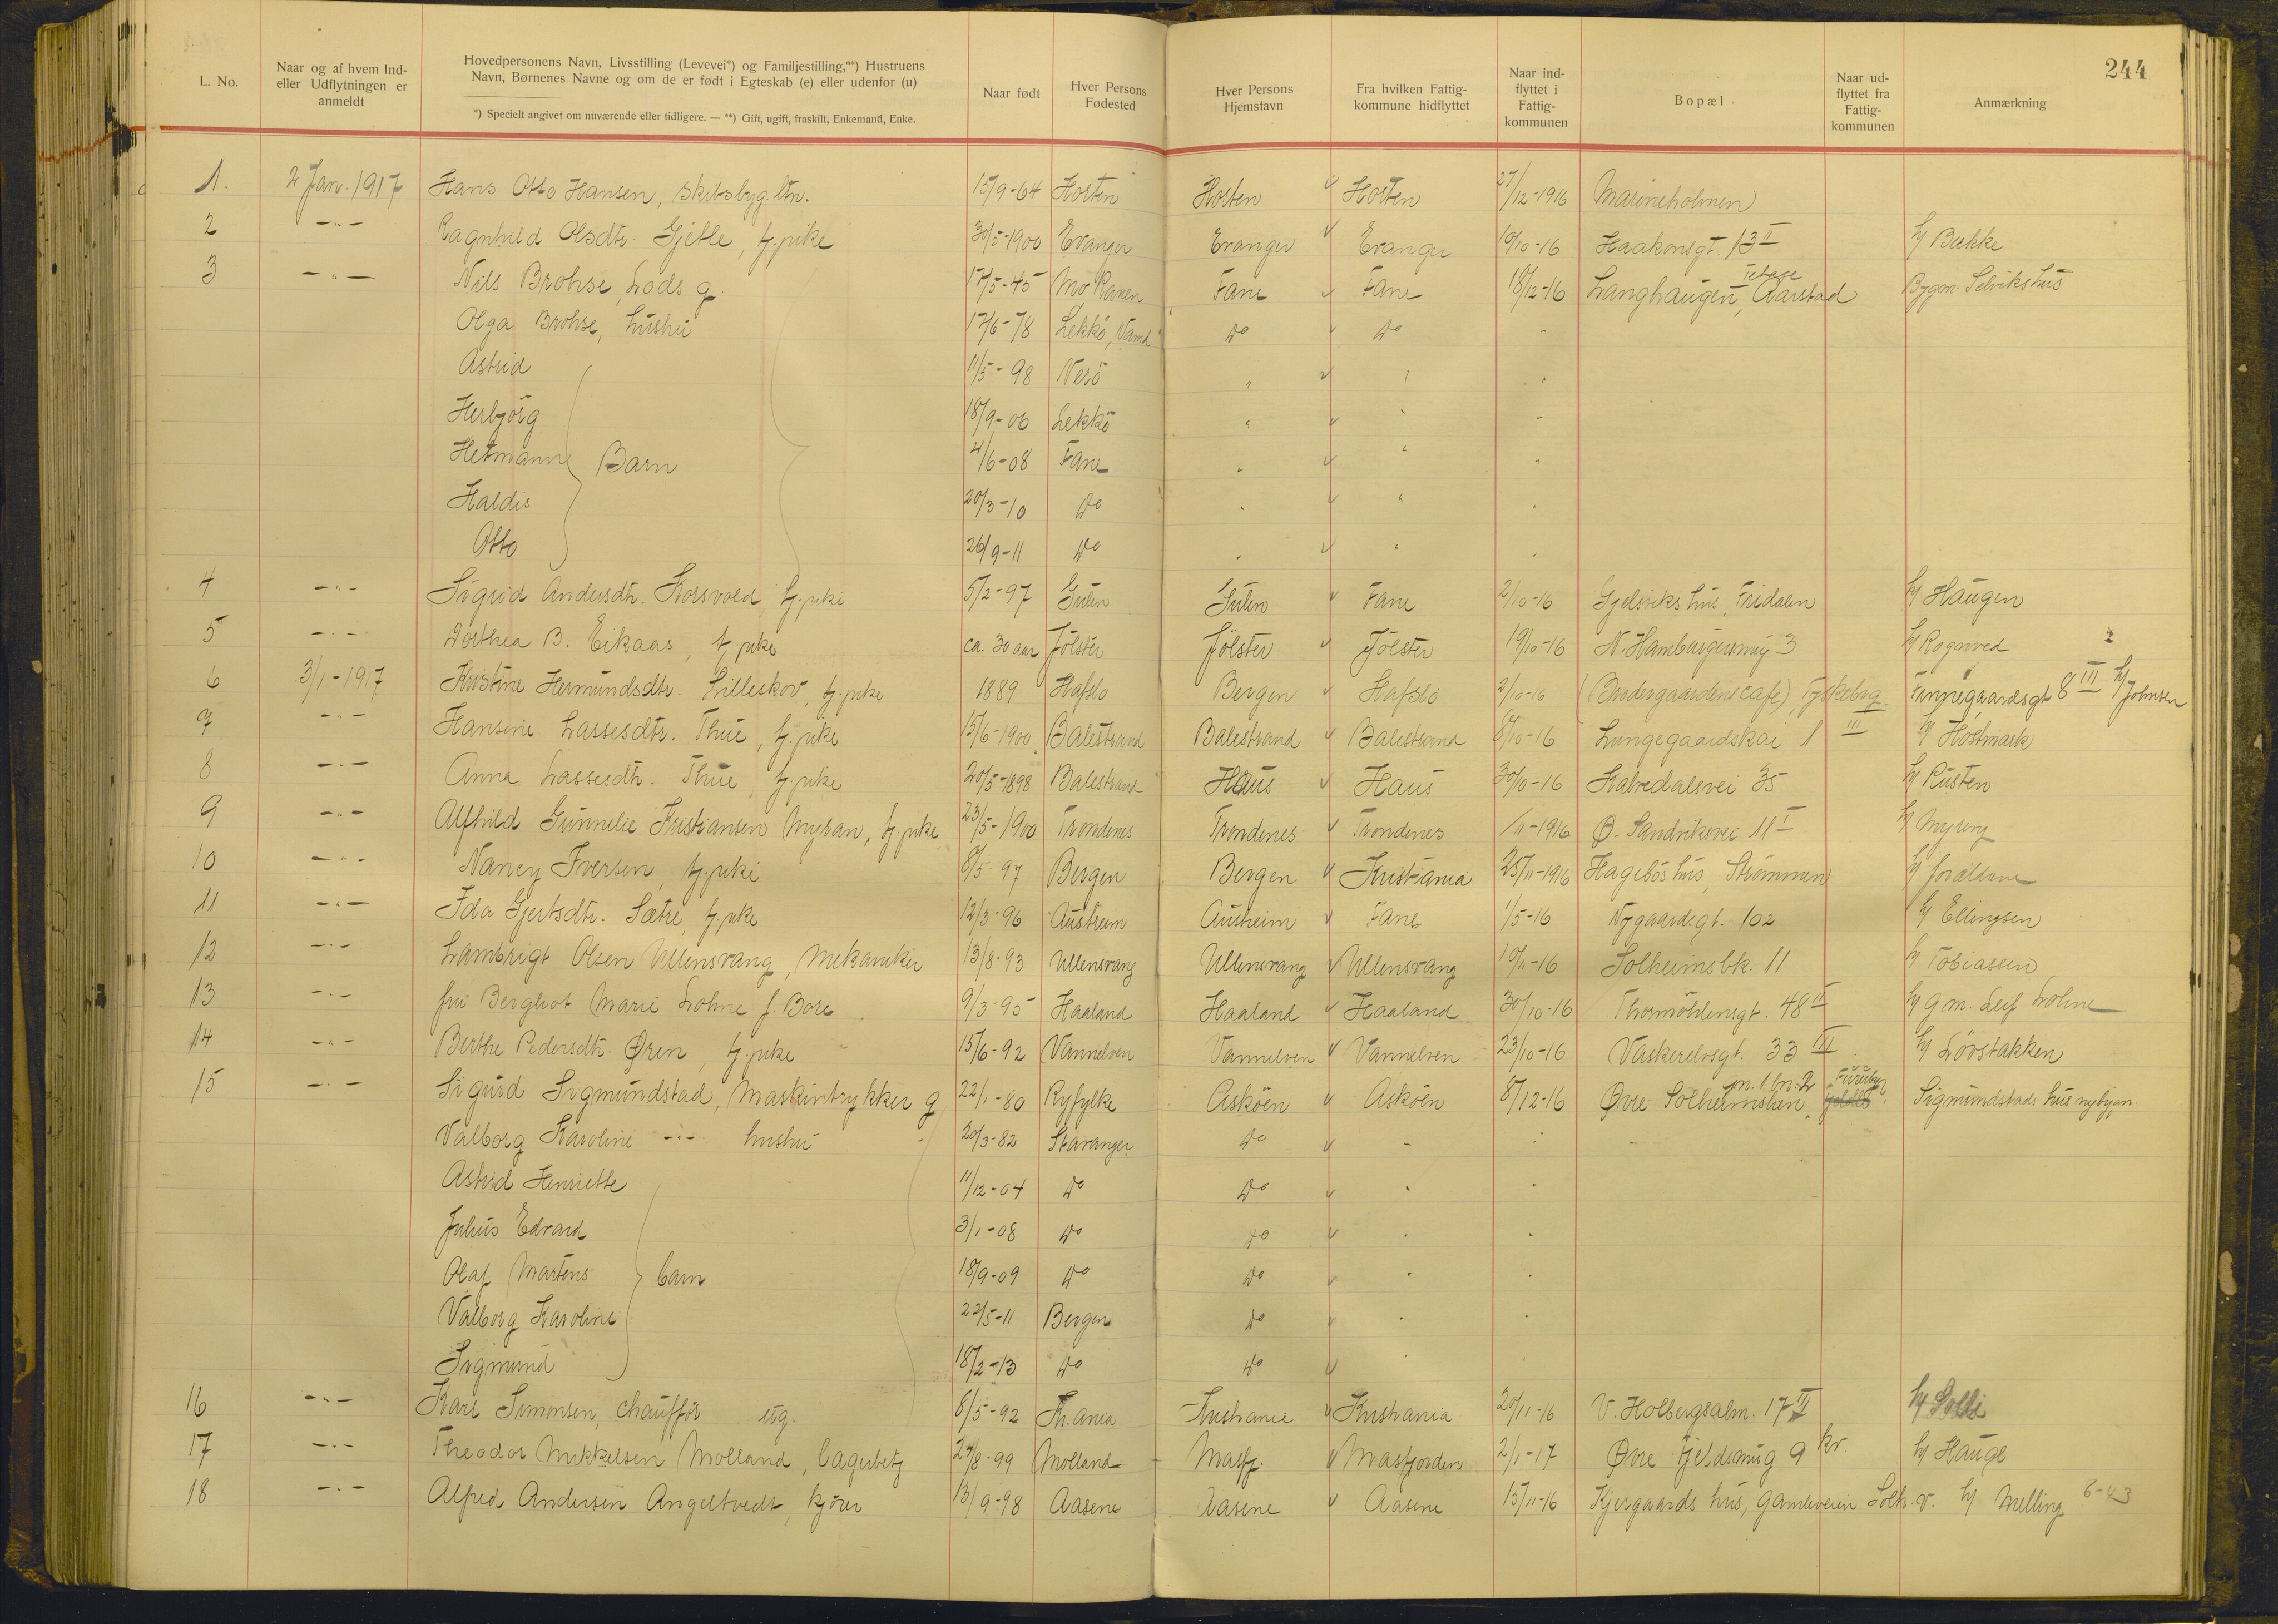 244
L. No.
Naar og af hvem Ind- eller Udflytningen er anmeldt
Hovedpersonens Navn, Livsstilling (Levevei*) og Familjestilling,**) Hustruens Navn, Børnenes Navne og om de er født i Egteskab (e) eller udenfor (u)
*) Specielt angivet om nuværende eller tidligere. — **) Gift, ugift, fraskilt, Enkemand, Enke.
Naar født
Hver Persons Fødested
Hver Persons Hjemstavn
Fra hvilken Fattig- kommune hidflyttet
Naar ind- flyttet i Fattig- kommunen
Bopæl
Naar ud- flyttet fra Fattig- kommunen
Anmærkning
1. 2 Jan. 1917 Hans Otto Hansen, skibsbyg.ltn. 15/9-64 Horten Horten Horten 27/12-1916 Marineholmen
2 -"- Ragnhild Olsdtr. Gjelle, tj.pike 30/5-1900 Evanger Evanger Evanger 10/10-16 Haakonsgt. 13 II h/ Bakke
3 -"- Nils Brohse, Lods g. 17/5-45 Mo Ranen Fane Fane 18/12-16 Langhaugen, Aarstad Bygm. Selviks hus
Olga Brohse, hustru 17/6-78 Lekkö, Vamd do do "
Astrid 11/5-98 Nerö " " "
Herbjörg 18/9-06 Lekkö " " "
Hermann Barn 4/6-08 Fane " " "
Haldis 20/3-10 do " " "
Otto 26/9-11 do " " "
4 -"- Sigrid Andersdtr. Korsvold, tj.pike 5/2-97 Gulen Gulen Fane 2/10-16 Gjelsviks hus, Fridalen h/ Haugen
5 -"- Dorthea B. Eikaas, tj.pike ca. 30 aar Jölster Jölster Jölster 19/10-16 N. Hamburgersmug 3 h/ Rognved
6 3/1-1917 Kristine Hermundsdtr. Lilleskov, tj.pike 1889 Hafslo Bergen Hafslo 2/10-16 (Bredergaardens cafe), Tyskebrg. Finnegaardsgt 8 III h/ Johnsen
7 -"- Hansine Lassesdtr. Thue, tj.pike 15/6-1900 Balestrand Balestrand Balestrand 8/10-16 Lungegaardskai 1 III h/ Høstmark
8 -"- Anna Lassesdtr. Thue, tj.pike 20/5-1898 Balestrand Haus Haus 30/10-16 Kalvedalsvei 35 h/ Rusten
9 -"- Alfhild Gunnelie Kristiansen Myran, tj.pike 23/5-1900 Trondenes Trondenes Trondenes /11-1916 Ø. Sandviksvei 11 I h/ Myreng
10 -"- Nancy Iversen, tj.pike 8/5-97 Bergen Bergen Kristiania 25/11-1916 Hagebös hus, Strømmen h/ forældrene
11 -"- Ida Gjertsdtr. Sætre, tj.pike 12/3-96 Austreim Austreim Fane 1/5-16 Nygaardsgt. 102 h/ Ellingsen
12 -"- Lambrigt Olsen Ullensvang, Mekaniker 13/8-93 Ullensvang Ullensvang Ullensvang 10/11-16 Solheimsbk. 11 h/ Tobiassen
13 -"- fru Bergliot Marie Lohne f. Bore 9/3-95 Haaland Haaland Haaland 30/10-16 Thormöhlensgt. 48 II h/ gm. Leif Lohne
14 -"- Berthe Pedersdtr. Øren, tj.pike 15/6-92 Vannelven Vannelven Vannelven 23/10-16 Vaskerelvsgt. 33 III h/ Lövstakken
15 -"- Sigurd Sigmundstad, Maskintrykker g. 22/1-80 Ryfylke Askøen Askøen 8/12-16 Øvre Solheimslien Sigmundstads hus nybyan.
Valborg Karoline -"- hustru 20/3-82 Stavanger do " "
Astrid Henriette 11/12-04 do do " "
Julius Edvard 3/1-08 do do " "
Olaf Martens barn 18/9-09 do do " "
Valborg Karoline 22/5-11 Bergen do " "
Sigmund 18/2-13 do do " "
16 -"- Karl Simonsen, chauffør ug. 8/5-92 Kr.ania Kristiania Kristiania 20/11-16 V. Holbergsalm. 17 II h/ Solli
17 -"- Theodor Mikkelsen Molland, lagerbetj 24/8-99 Molland Masfj. Masfjorden 2/1-17 Øvre Fjeldsmug 9 kv. h/ Hauge
18 -"- Alfred Andersen Angeltvedt, kjører 13/9-98 Aasene Aasene Aasene 15/11-16 Kjergaards hus, Gamleveien Solh.v. h/ Melling 8-43